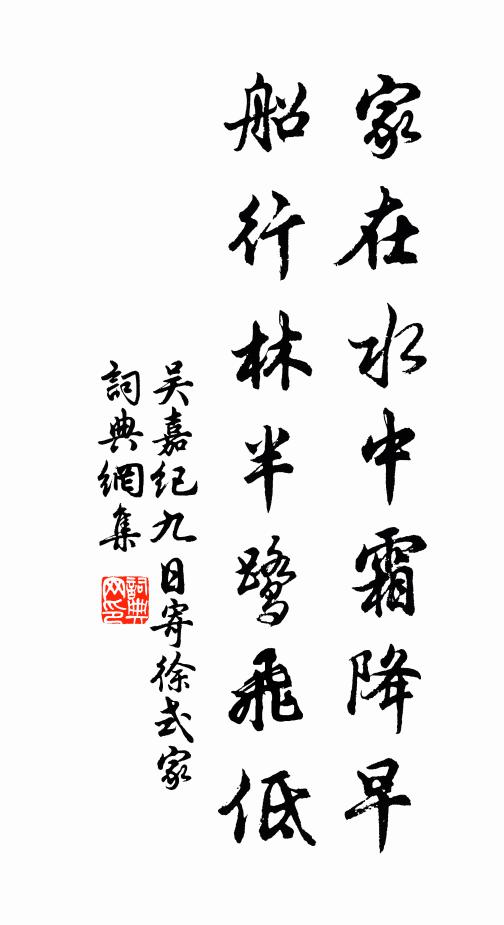 家在水中霜降早
船行林半鹭飛低
吴嘉纪九日寄徐式家
詞典網集
詞典網印